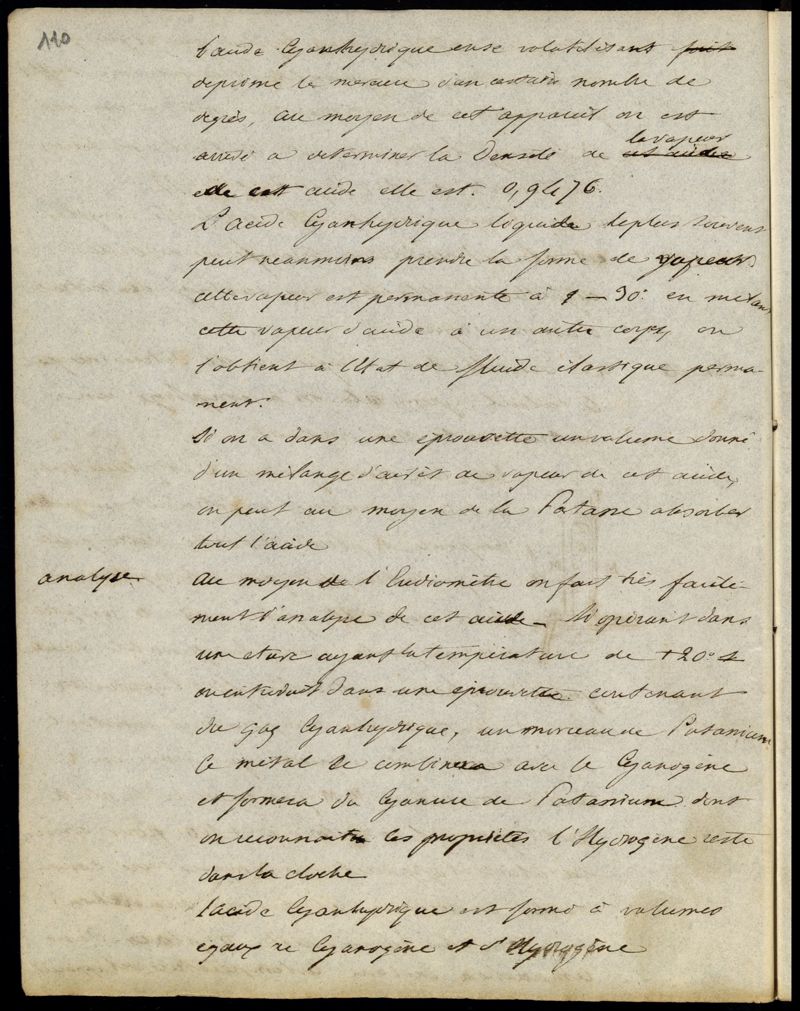 110
l'acide Cyanhydrique en se volatilisant fait
deprime le mercure d'un certain nombre de
degrés, au moyen de cet appareil on est
arrivé a determiner la Densité de la vapeur
de cet acide elle est. 0,9476.
L'acide Cyanhydrique liquide le plus souvent
peut neanmoins prendre la forme de vapeurs
cette vapeur est permanente à en melan
cette vapeur d'acide à un autre corps, on
l'obtient à l'Etat de fluide elastique perma-
nent.
Si on a dans une eprouvette un volume donné
d'un melange d'air et de vapeur de cet acide,
on peut au moyen de la Potasse absorber
tout l'acide
analyse. au moyen de l'Eudiomètre on fait très facile-
ment l'analyse de cet acide - Si opérant dans
une etuve ayant la température de +20°
on introduit dans une eprouvette contenant
du gaz Cyanhydrique, un morceau de Potassium
Ce métal se combinera avec le Cyanogène
et formera du Cyanure de Potassium dont
on reconnaitra les propriétés l'Hydrogène reste
dans la cloche
l'acide Cyanhydrique est formé à volumes
egaux de Cyanogène et d'Hydrogène